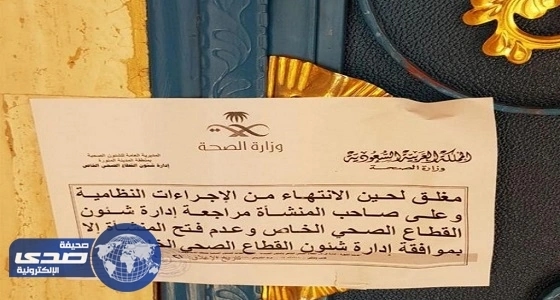 المملكة العربية السعودية
وزارة الصحة
وزارة الصحة
المديرية العامة للشئون الصحية
بمنطقة المدينة المنورة
إدارة شئون القطاع الصحي الخاص
مغلق لحين الانتهاء من الإجراءات النظامية
وعلى صاحب المنشأة مراجعة إدارة شئون
القطاع الصحي الخاص وعدم فتح المنشأة إلا
بموافقة إدارة شئون القطاع الصحي
تاريخ الإغلاق
صحيفة
صدى
الإلكترونية